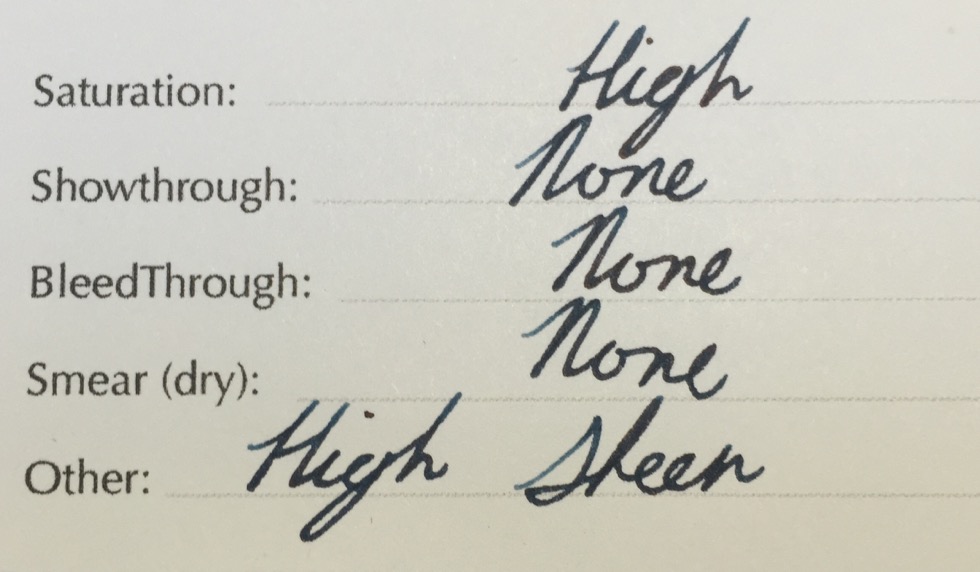 Saturation: High
Showthrough: None
BleedThrough: None
Smear (dry): None
Other: High Sheen